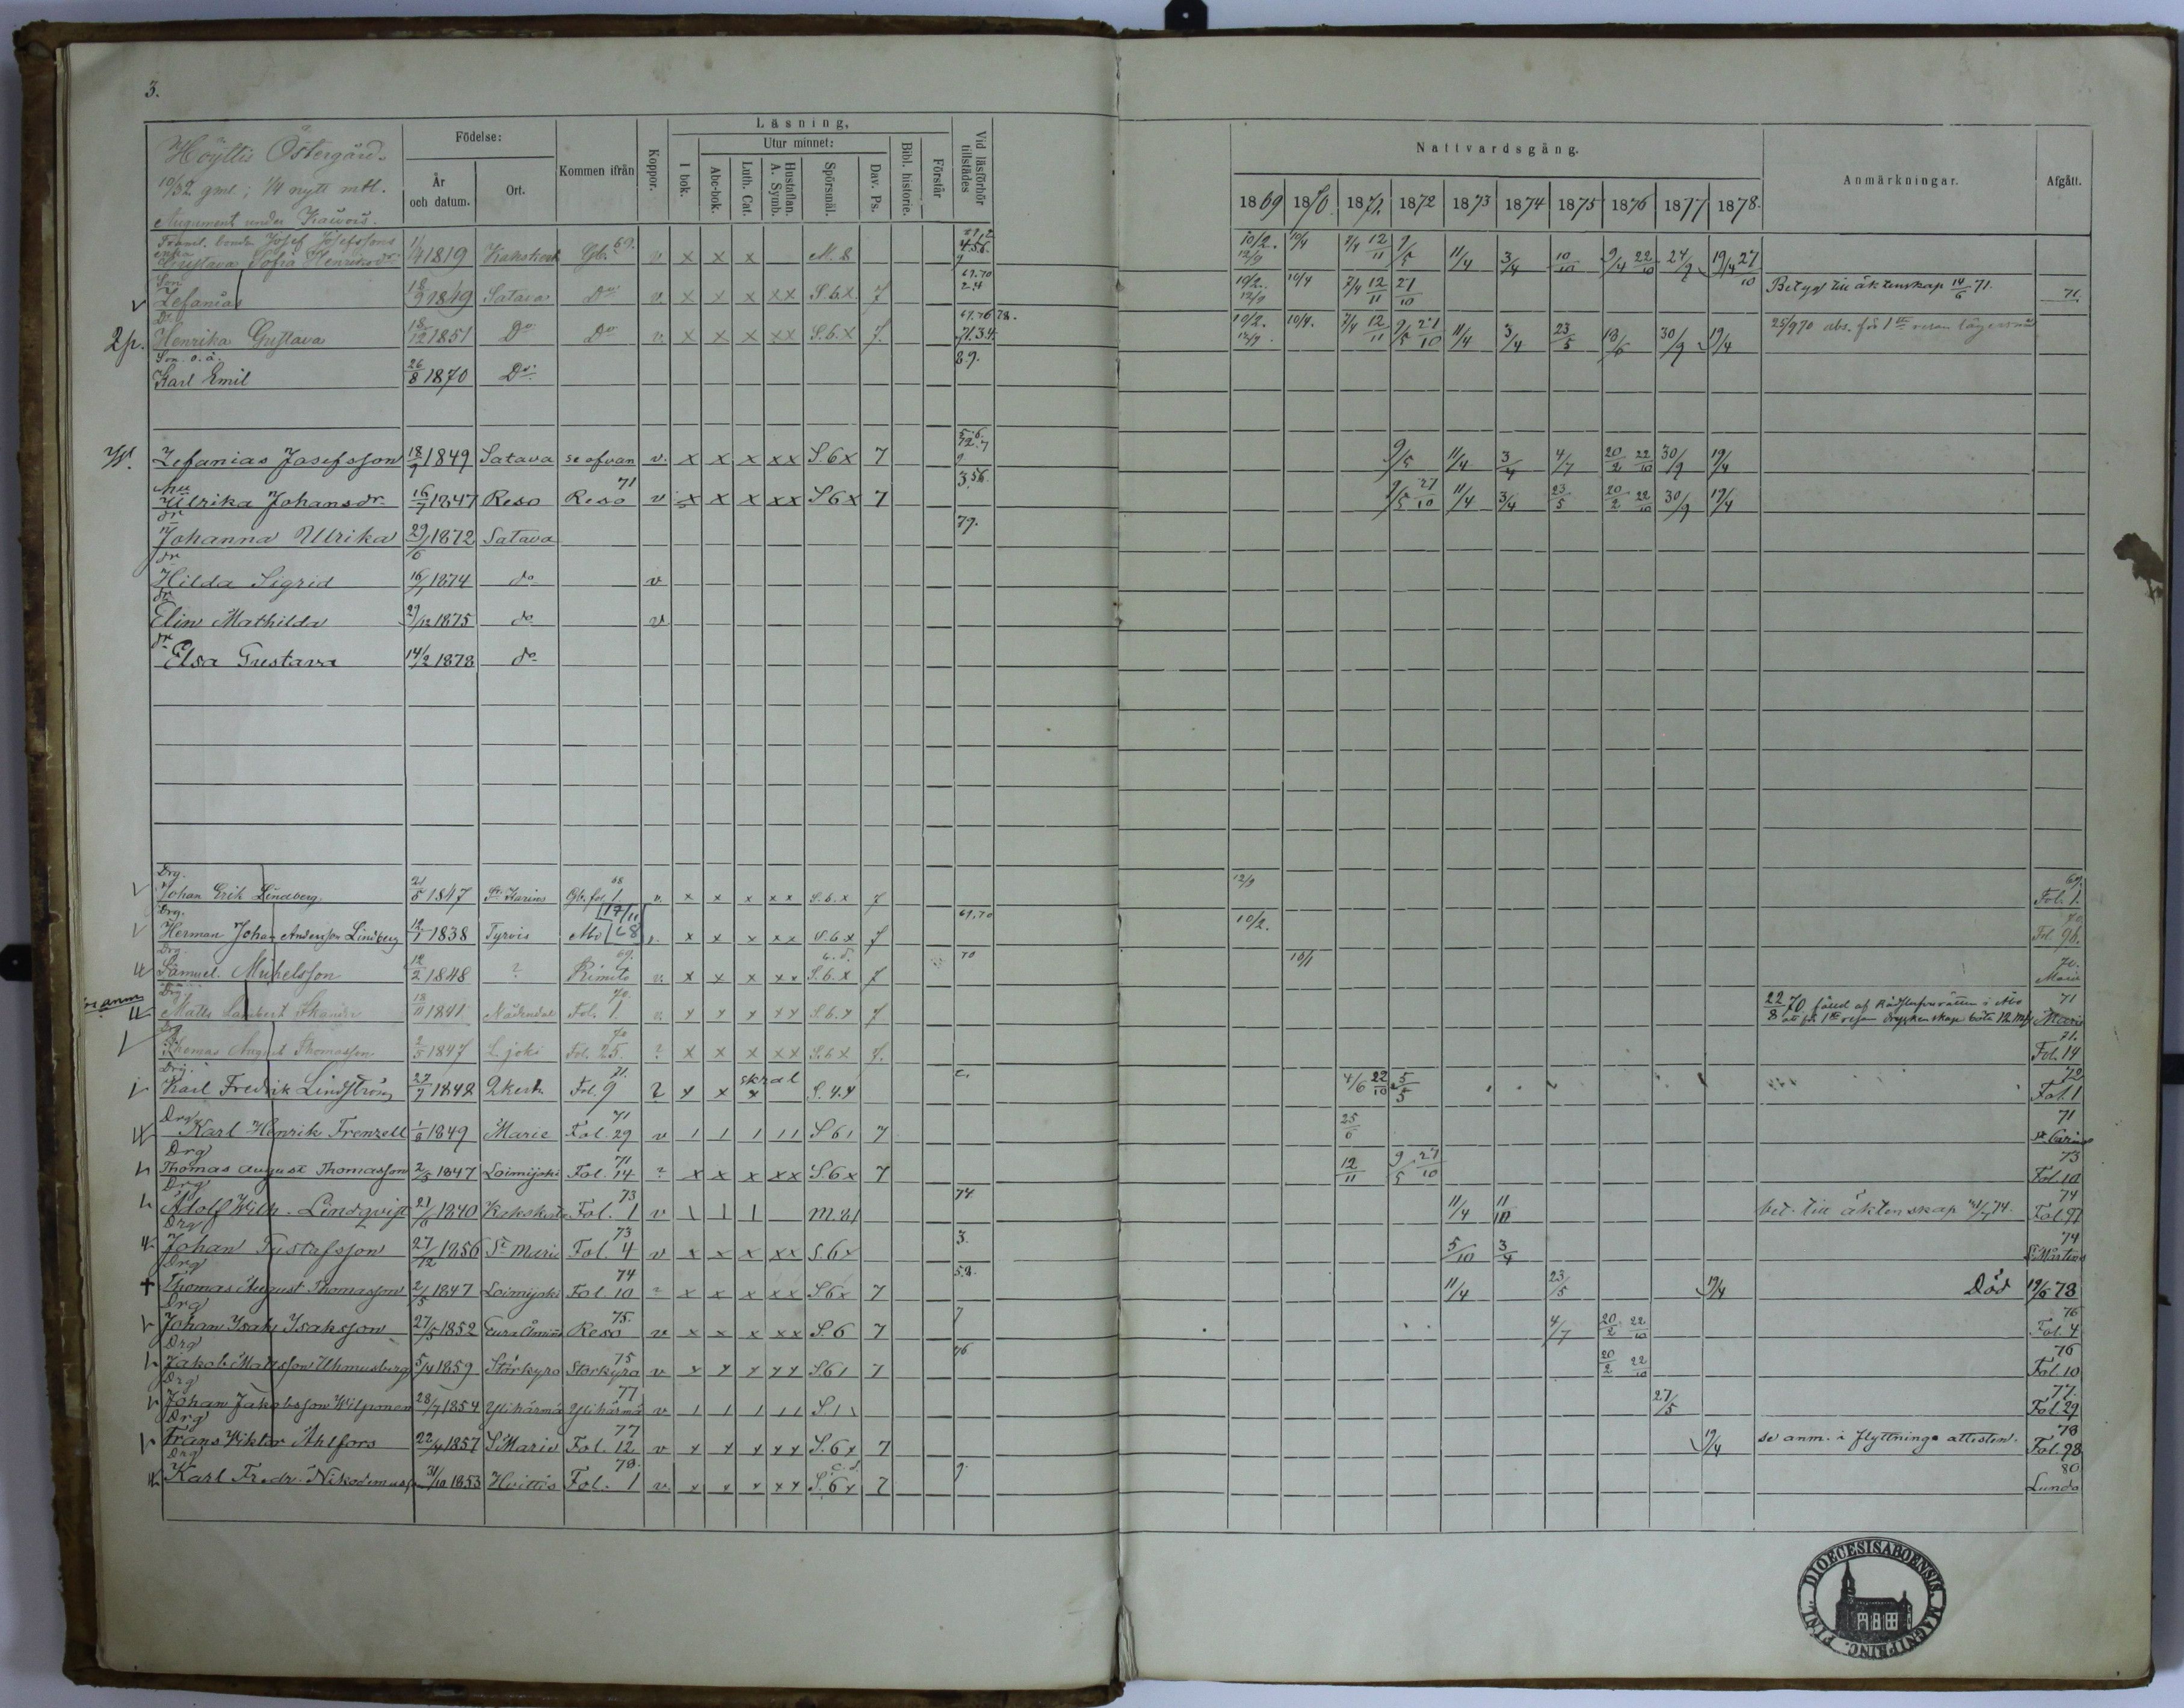 3.
Höyltis Östergård.
10/32 gml; 1/4 nytt mtl.
Augument under Kaurois.
Födelse:
År och datum.
Ort.
Kommen ifrån
Koppor.
Läsning,
I bok.
Utur minnet:
Abc-bok.
Luth. Cat.
Hustaflan. A. Symb.
Spörsmål.
Dav. Ps.
Bibl. historie.
Förstår
Vid läsförhör tillstädes
Nattvardsgång.
1869 1870 1871. 1872 1873 1874 1875 1876 1877 1878.
Anmärkningar.
Afgått.
bonde Josef Josefssons
enka Gustava Sofia Henriksdr 1/4 1819 Kakskerta Gb. 69. v x x x M. 8 10/2. 12/9 10/4 7/4 12/11 9/5 11/4 3/4 10/10 9/4 22/10 24/9 19/4 27/10
Son Zefanias 18/9 1849 Satava Do v. x x x xx S. 6 x 7 69.70 2.4 10/2. 12/9 10/4 7/4 12/11 27/10 Betyg till äktenskap 14/6 71. 71.
2p. Dr Henrika Gustava 18/12 1851 Do Do v x x x xx S. 6. x 7. 10/2. 12/9. 10/4. 7/4 12/11 9/5 27/10 11/4 3/4 23/5 18/6 30/9 19/4 25/9 70 abs. för 1sta resan lägersmål
Son o.ä. Karl Emil 26/8 1870 Do 89.
Zefanias Josefsson 18/9 1849 Satava se ofvan v. x x x xx S. 6 x 7 9/5 11/4 3/4 4/7 20/2 22/10 30/9 19/4
hu Ulrika Johansdr 16/7 1847 Reso Reso 71 v x x x xx S 6 x 7 3.56. 9/5 27/10 11/4 3/4 23/5 20/2 22/10 30/9 19/4
dr Johanna Ulrika 29/6 1872 Satava 79.
dr Hilda Sigrid 16/7 1874 do v
dr Elin Mathilda 29/12 1875 do v
dr Elsa Gustava 14/2 1878 do
Drg. Johan Erik Lindberg. 21/5 1847 St Karins Gb. fol 1. 68 v. x x x x x S. 6. x 7 12/9 69. Fol. 1.
Drg. Herman Johan Andersson Lindberg 12/1 1838 Tyrvis Åbo 17/11 68 v. x x x x x S. 6 x 7 69.70 10/2. 70 Fol. 96.
Drg Samuel Mickelsson 12/2 1848 ? Rimito 69. v. x x x x x S. 6. x 7 70 10/4 70. Maria
Drg Matts Lambert 18/11 1841 Nådendal Fol. 1. 70. v. x x x x x S. 6. x 7 22/8 70 fälld af Rådstufvurätten i Åbo att för 1sta resan dryckenskap böta 12 mk 71 Marie
Drg Thomas August Thomasson 2/5 1847 L. joki Fol. 25. 70 ? x x x x x S. 6 x 7. 71. Fol. 14
Drg. Karl Fredrik Lindström 27/7 1848 Fol. 9 71. 2 x x skral x S. 4. x 2. 4/6 22/10 5/5 72 Fol. 1
Drg Karl Henrik Frenzell 1/8 1849 Marie Fol. 29 71 v 1 1 1 11 S 61 7 25/6 71 St Carins
Drg Thomas August Thomasson 2/5 1847 Loimijoki Fol. 14 71 ? x x x x x S. 6 x 7 12/11 9/5 27/10 73 Fol. 10
Drg Adolf Wilh. Lindqvist 21/6 1840 Kakskerta Fol. 1 73 v 1 1 1 M. 81 74 11/4 11/10 bet. till äktenskap 74. 74 Fol 97
Drg Johan Gustafsson 27/12 1856 St Marie Fol. 4 73 v x x x x x S. 6 x 3. 5/10 3/4 74 St Mårtens
Drg Thomas August Thomasson 2/5 1847 Loimijoki Fol. 10 74 ? x x x x x S 6 x 7 5.8. 11/4 23/5 19/4 Död 19/6 78
Drg Johan Isak Isaksson 27/5 1852 Eura Åminne Reso 75. v x x x x x S. 6 7 7 4/7 20/2 22/10 76 Fol. 4
Drg Jakob Mattsson 5/4 1859 Storkyro Storkyro 75 v x x x x S. 61 7 76 20/2 22/10 76 Fol. 10
Drg Johan Jakobsson Wilponen 28/7 1854 Ylihärmä Ylihärmä 77 v 1 1 1 11 S 1 27/5 77. Fol 29
Drg Frans Wiktor Ahlfors 22/4 1857 S. Marie Fol. 12 77 v x x x x x S. 6 x 7 19/4 se anm. i flyttnings attesten. 78 Fol. 98
Drg Karl Fredr. Nikodemusson 31/10 1853 Hvittis Fol. 1 78. v x x x x x S. 6 x 7 9. 80 Lundo
DIOECESIS ABOENSIS. MAGNI PRINC. FINL.